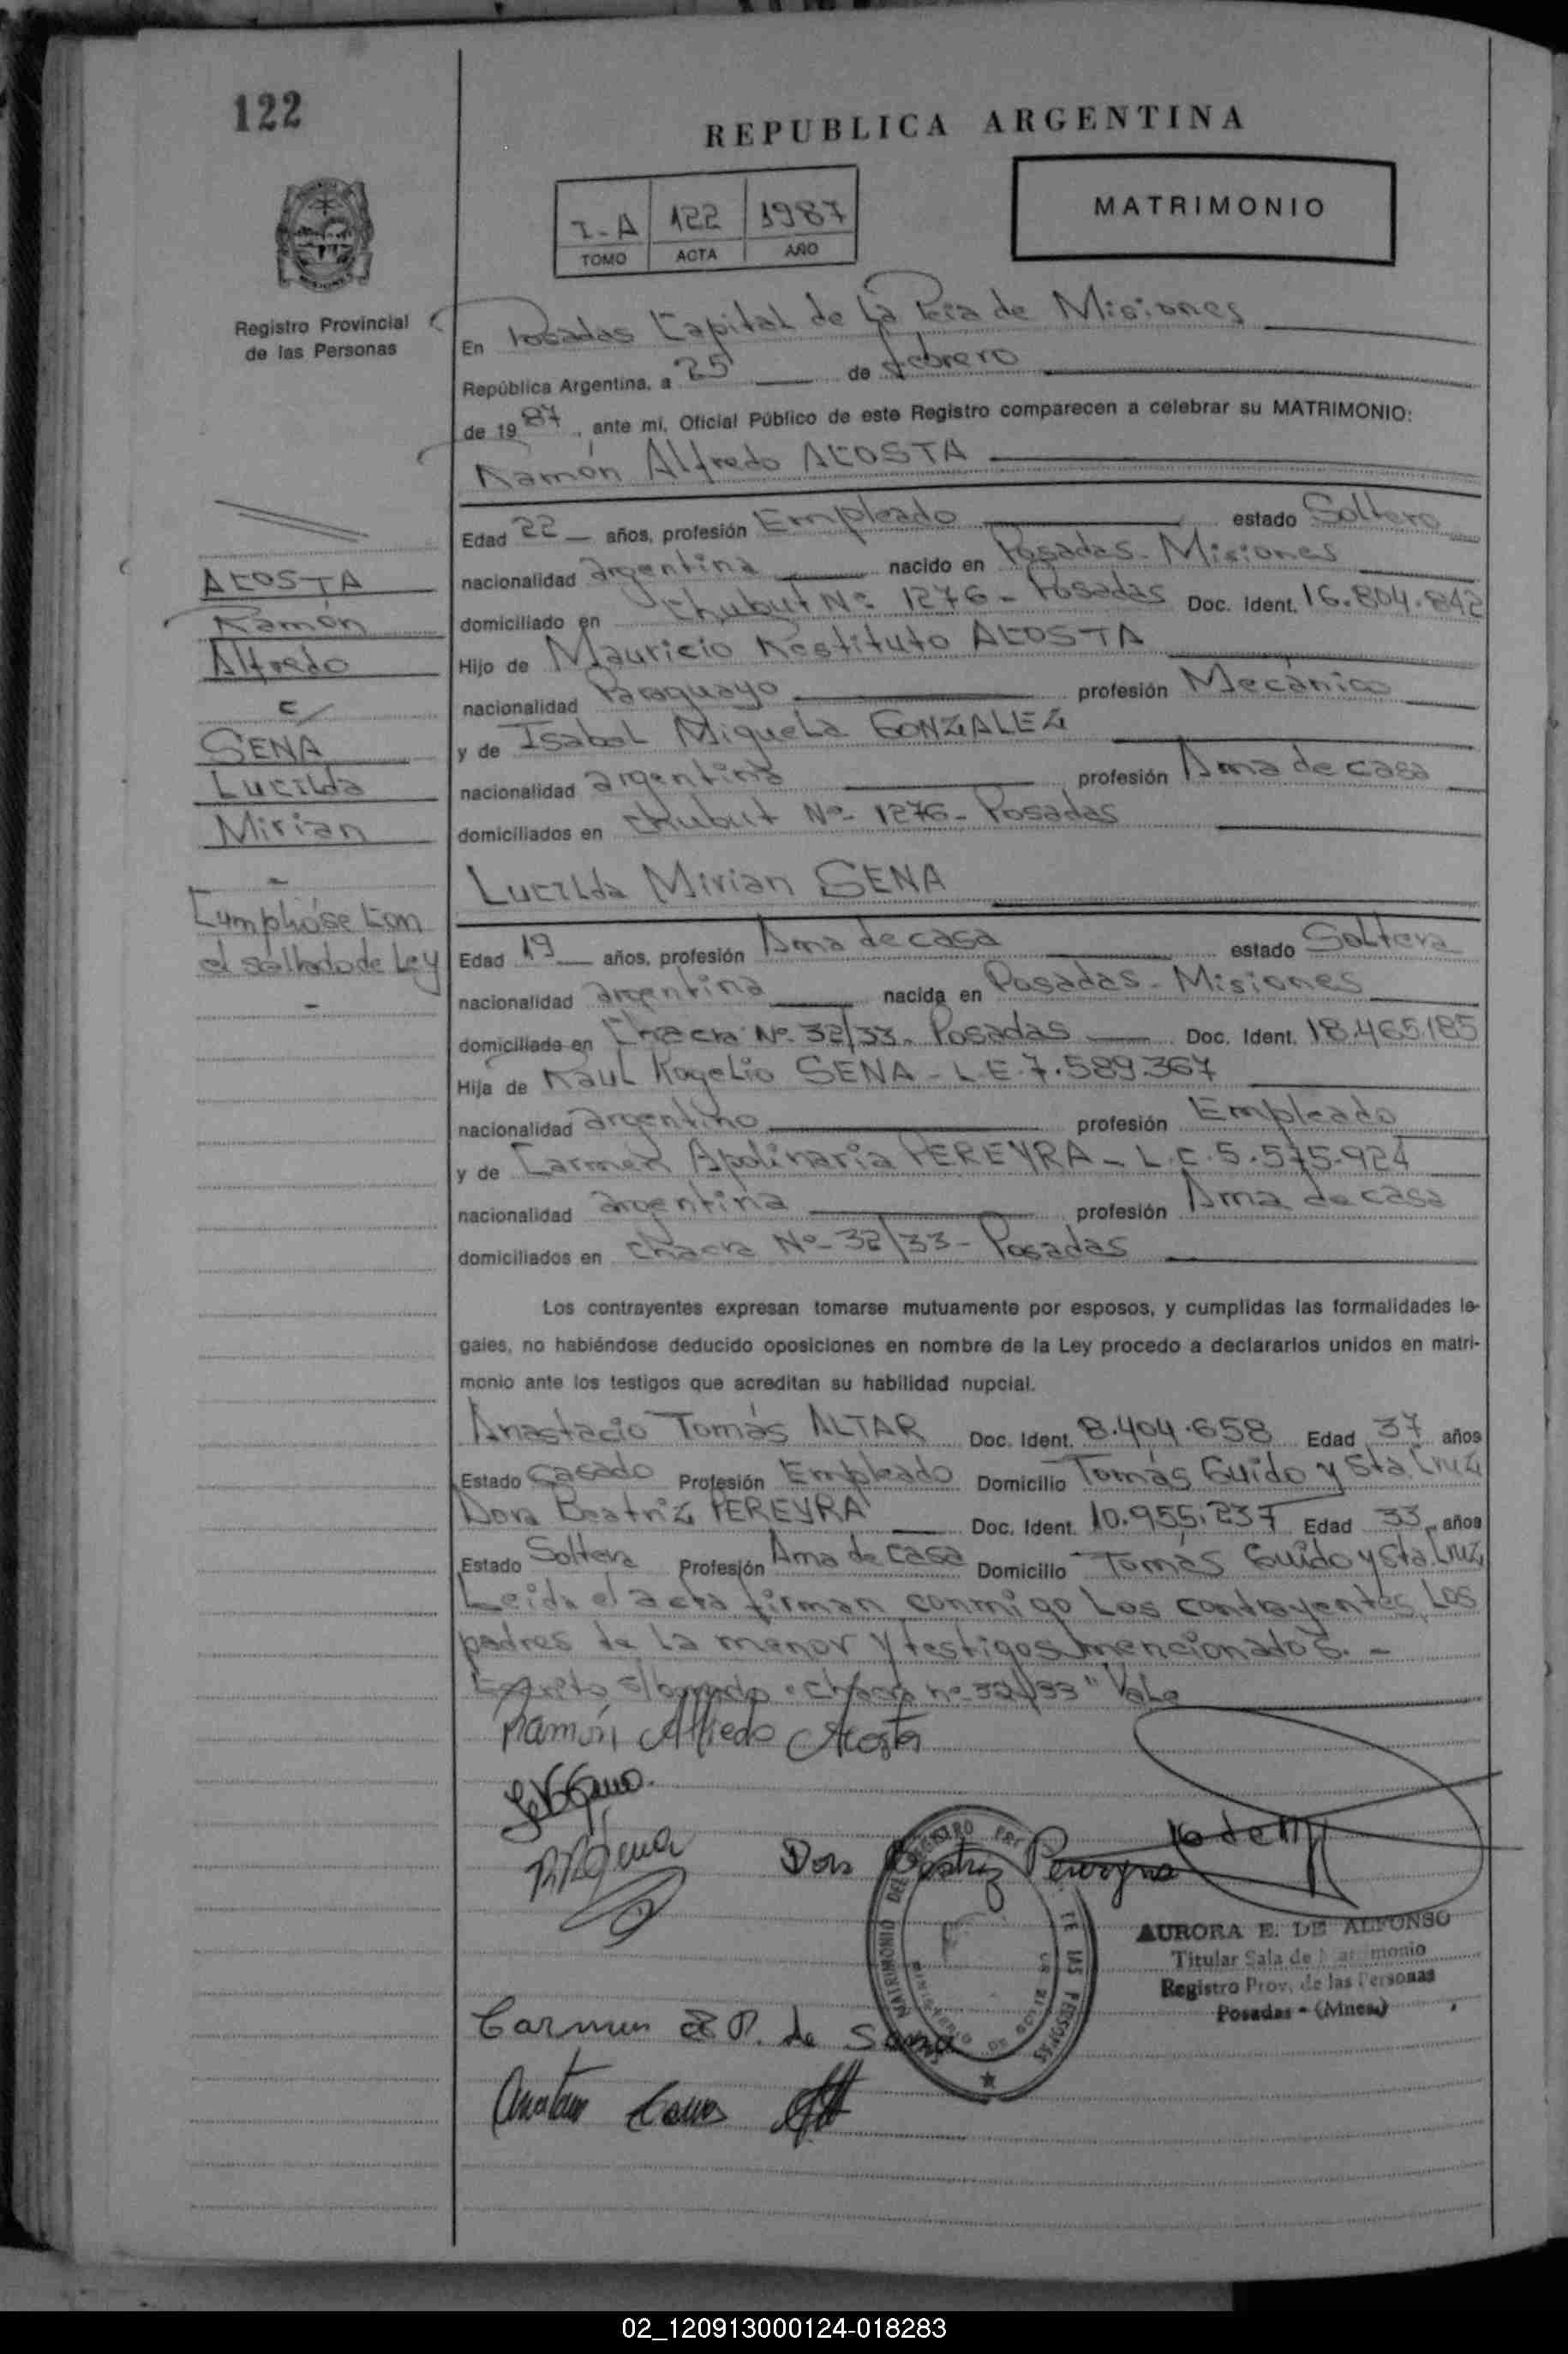 122
REPUBLICA ARGENTINA
I-A 122 1987
TOMO ACTA AÑO
MATRIMONIO
Registro Provincial
de las Personas
En Posadas Capital de La Pcia de Misiones
República Argentina, a 25 de febrero
de 1987, ante mi, Oficial Público de este Registro comparecen a celebrar su MATRIMONIO:
Ramón Alfredo ACOSTA
Edad 22 años, profesión Empleado estado Soltero
nacionalidad argentina nacido en Posadas - Misiones
domiciliado en Chubut Nº 1276 - Posadas Doc. Ident. 16.804.842
Hijo de Mauricio Restituto ACOSTA
nacionalidad Paraguayo profesión Mecánico
y de Isabel Miguela GONZALEZ
nacionalidad argentina profesión Ama de casa
domiciliados en Chubut Nº 1276 - Posadas
ACOSTA
Ramón
Alfredo
c/
SENA
Lucilda
Mirian
Cumplióse con
el sellado de Ley
Lucilda Mirian SENA
Edad 19 años, profesión Ama de casa estado Soltera
nacionalidad argentina nacida en Posadas - Misiones
domiciliada en Chacra Nº 32/33 - Posadas Doc. Ident. 18.465.185
Hija de Raúl Rogelio SENA - L.E. 7.589.367
nacionalidad argentino profesión Empleado
y de Carmen Apolinaria PEREYRA - L.C. 5.575.924
nacionalidad argentina profesión Ama de casa
domiciliados en Chacra Nº 32/33 - Posadas
Los contrayentes expresan tomarse mutuamente por esposos, y cumplidas las formalidades le-
gales, no habiéndose deducido oposiciones en nombre de la Ley procedo a declararlos unidos en matri-
monio ante los testigos que acreditan su habilidad nupcial.
Anastacio Tomás ALTAR Doc. Ident. 8.404.658 Edad 37 años
Estado Casado Profesión Empleado Domicilio Tomás Guido y Sta. Cruz
Dora Beatriz PEREYRA Doc. Ident. 10.955.237 Edad 33 años
Estado Soltera Profesión Ama de casa Domicilio Tomás Guido y Sta. Cruz
Leída el acta firman conmigo Los contrayentes, Los
padres de La menor y testigos mencionados. -
Escrito s/borrado "Chacra nº 32/33" Vale
Ramón Alfredo Acosta
Dora Beatriz Pereyra
AURORA E. DE ALFONSO
Titular Sala de Matrimonio
Registro Prov. de las Personas
Posadas - (Mnes.)
Carmen A P. de Sena
02_120913000124-018283